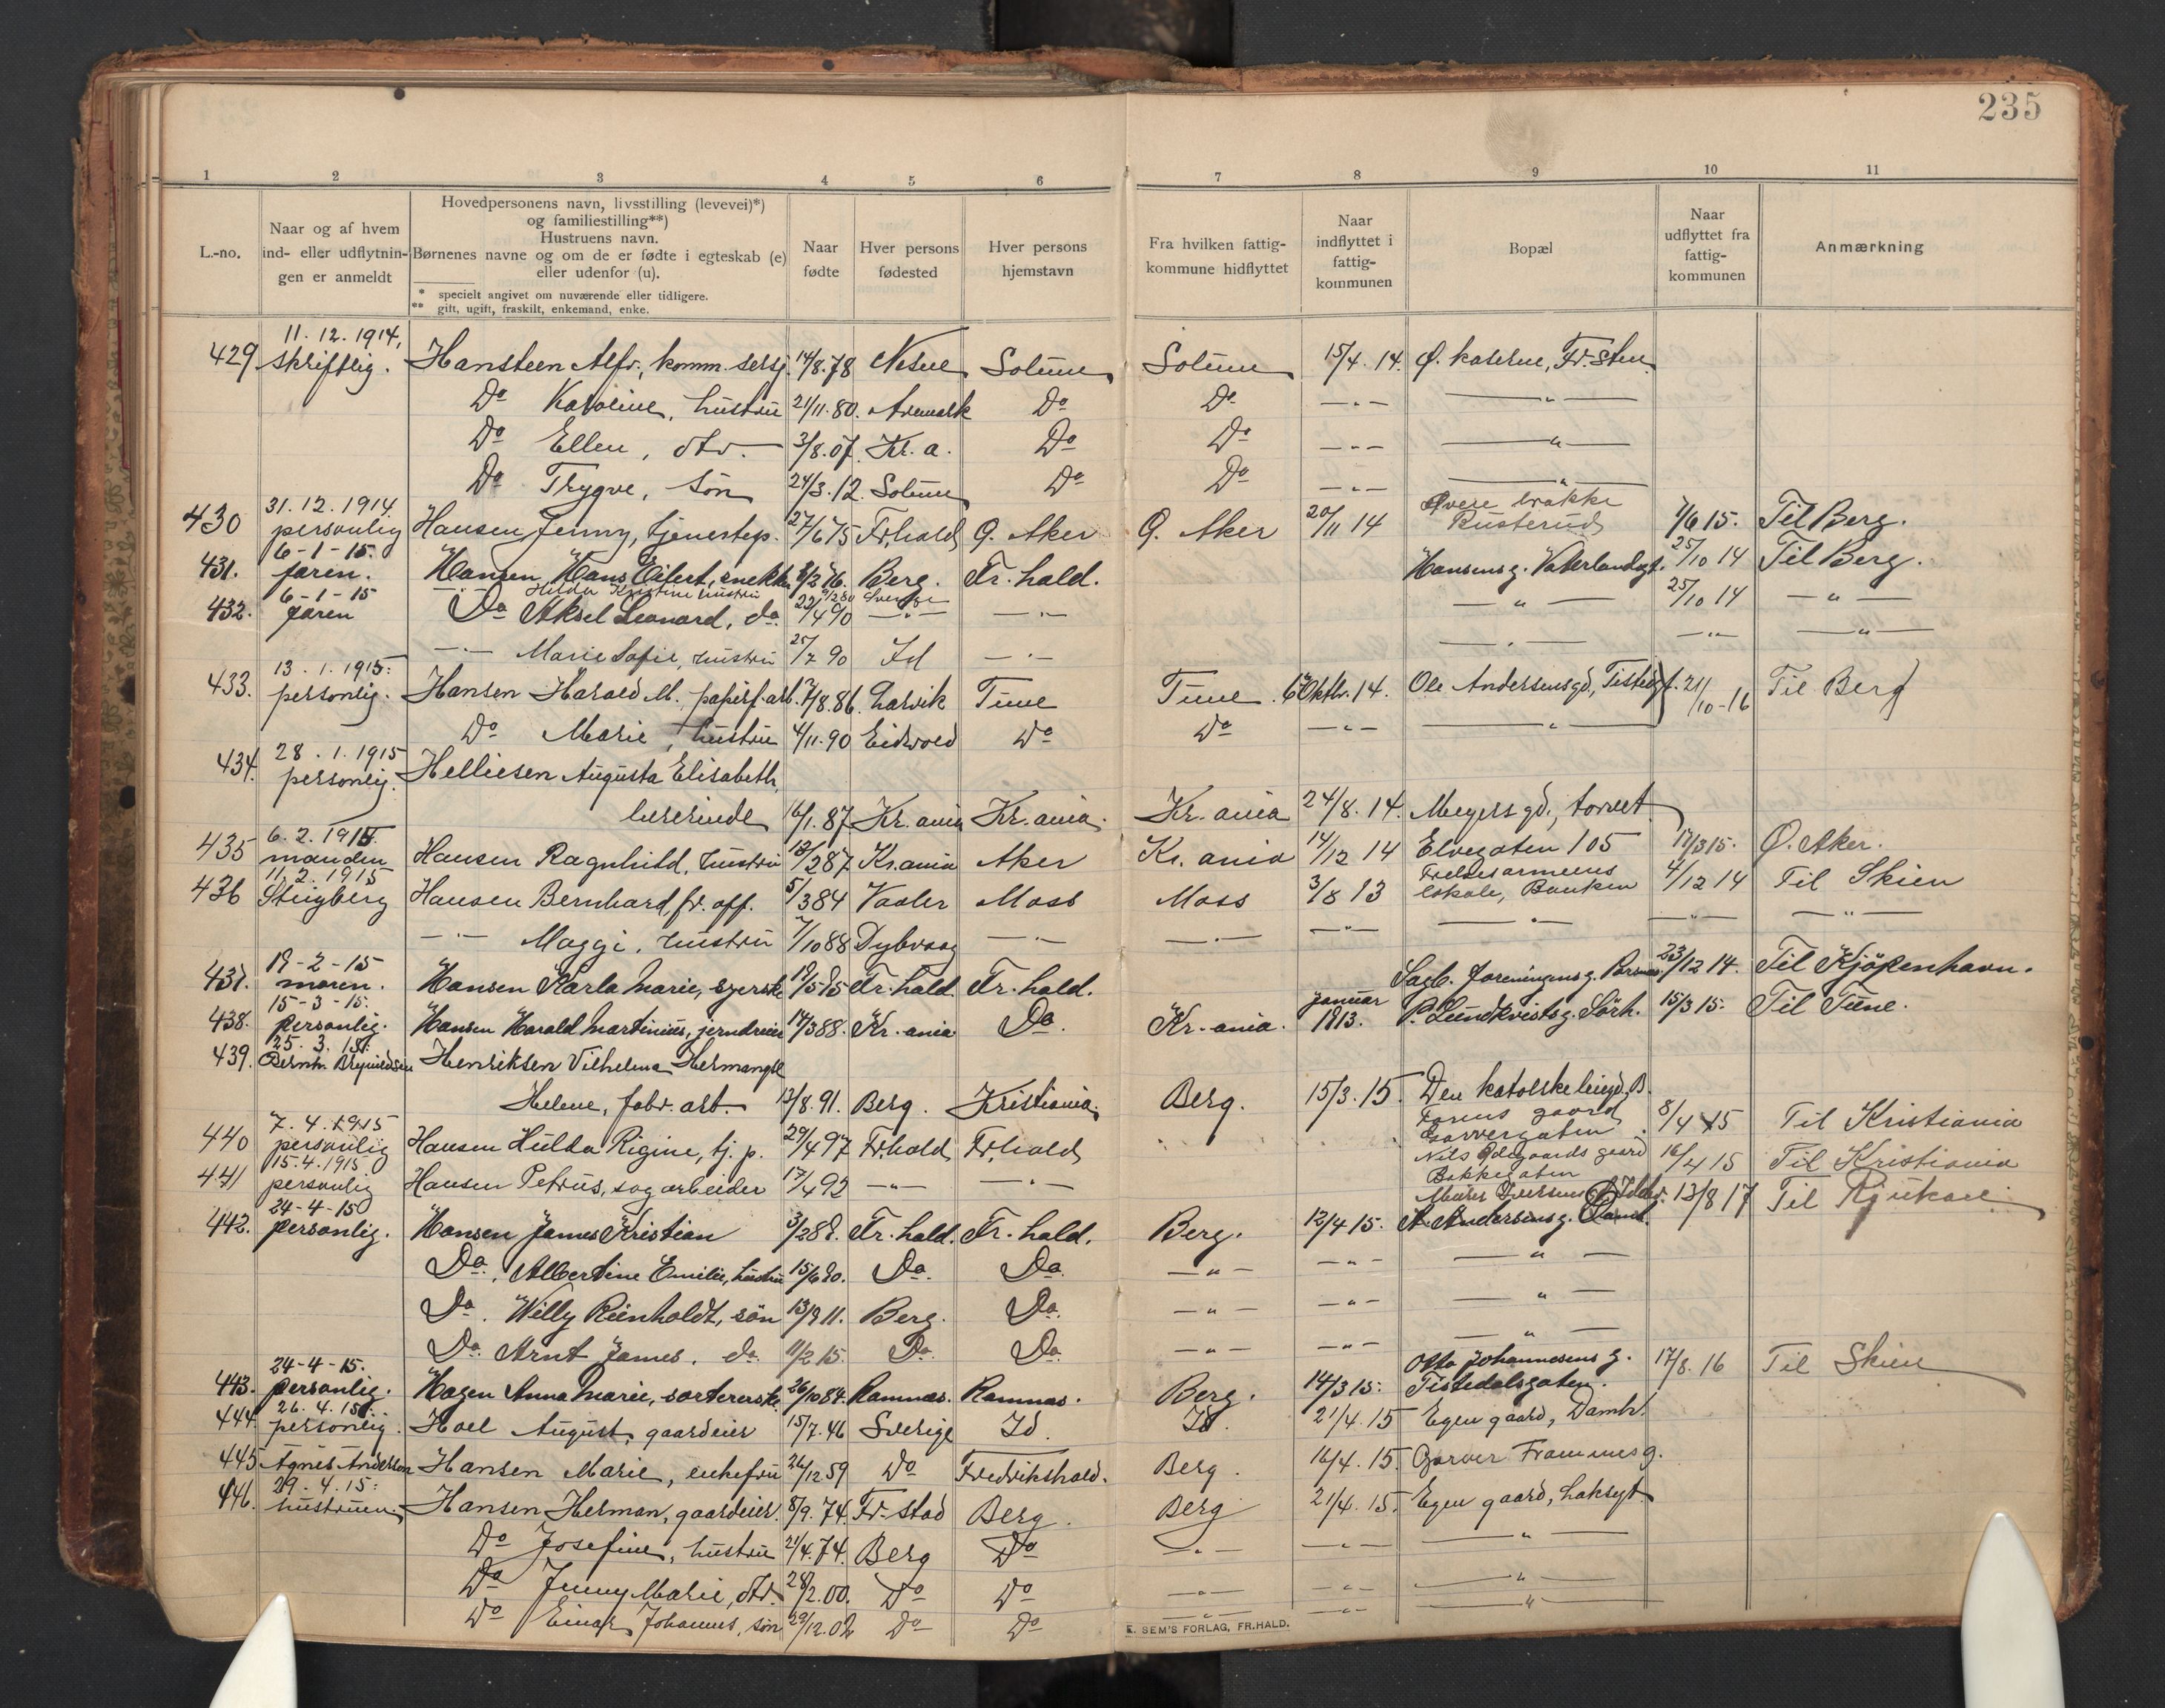 235
1 2 3 4 5 6 7 8 9 10 11
L.-no.
Naar og af hvem ind- eller udflytningen er anmeldt
Hovedpersonens navn, livsstilling (levevei)*)
og familiestilling**)
Hustruens navn.
Børnenes navne og om de er fødte i egteskab (e)
eller udenfor (u).
* specielt angivet om nuværende eller tidligere.
** gift, ugift, fraskilt, enkemand, enke.
Naar fødte
Hver persons fødested
Hver persons hjemstavn
Fra hvilken fattig-
kommune hidflyttet
Naar
indflyttet i
fattig-
kommunen
Bopæl
Naar
udflyttet fra
fattig-
kommunen
Anmærkning
11. 12. 1914,
429 skriftlig. Hansteen Alfr., komm. sersj. 14/8.78 Solum Solum 15/4.14. Ø. kaserne, Fr. sten
Do Karoline, hustru 21/11.80. Aremark Do Do —„— —„—
Do Ellen, dtr. 3/8.07. Kr.a. Do Do —„— —„—
Do Trygve, søn 24/3.12. Solum Do Do —„— —„—
31.12.1914
430 personlig Hansen Jenny, tjenestep. 27/6 75 Fr.hald Ø. Aker Ø. Aker 20/11 14 Øvere brakke Rusterud 1/6 15. Til Berg.
6-1-15.
431. faren. Hansen, Hans Eilert, snekker Berg. Fr.hald. Hansens g. Vaterlandsgt. 25/10 14 Til Berg.
—„— Hilda Kristine hustru Sverige
6-1-15
432. faren Do Aksel Leonard, do. 22/4 90 —„— —„— —„— 25/10 14 —„—
—„— Marie Sofie, hustru 25/7 90 Id —„— —„— —„— —„—
13.1.1915.
433. personlig. Hansen Harald M., papirf.arb. 7/8.86. Larvik Tune Tune Oktbr. 14. Ole Andersens gd, Tistedgt. 21/10-16 Til Berg
Do Marie, hustru 4/11.90 Eidsvold Do Do —„— —„—
28.1.1915
434. personlig. Helliesen Augusta Elisabeth,
lærerinde 6/1.87 Kr.ania Kr.ania. Kr.ania 24/8.14. Meyers gd., torvet
6.2.1915
435 manden Hansen Ragnhild, hustru 12/2 87 Kr.ania Aker Kr.ania 14/12 14 Elvegaten 105 17/3 15. Ø. Aker.
11.2.1915
436 Stugberg Hansen Bernhard, fr. off. 5/3 84 Vaaler Moss Moss 3/8 13 Frelsesarmeens lokale, Banken 4/12 14 Til Skien
—„— Maggi, hustru 7/10 88 Dybvaag —„— —„— —„— —„— —„— —„—
19-2-15
437. moren. Hansen Karla Marie, syerske Fr.hald. Fr.hald. Sagb. foreningens g. 23/12 14. Til Kjøpenhavn.
15-3-15.
438. personlig. Hansen Harald Martinius, jerndreier 14/3 88. Kr.ania Do. Kr.ania. Januar 1913. P. Lundkvists g. Sørh. 15/3 15. Til Tune.
25.3.15.
439. Bernh. Brynildsen Henriksen Vilhelma Hermangil
Helene, fabr. arb. 13/8.91. Berg. Kristiania. Berg. 15/3.15. Den katolske leieg., B.
7.4.1915
440 personlig Hansen Hulda Rigine, tj. p. 29/4 97 Fr.hald Fr.hald Forens gaard Garvergaten 8/4 15 Til Kristiania
15.4.1915
441 personlig Hansen Petrus, sagarbeider 17/4 92 —„— —„— Nils Ødegaards gaard Bakkegaten 16/4 15 Til Kristiania
24-4-15
442. personlig. Hansen James Kristian 3/2 88. Fr.hald. Fr.hald. Berg. 12/4 15. A. Andersens g. Damh. 13/8 17 Til Rjukan
Do. Albertine Emilie, hustru 15/6 90. Do. Do. —„— —„— —„—
Do. Willy Reinholdt, søn 13/9 11. Berg. Do. —„— —„— —„—
Do. Arnt James, do. 11/2 15. Do. Do. —„— —„— —„—
24-4-15.
443. personlig. Hagen Anna Marie, sortererske 26/10 84. Ramnæs. Ramnæs. Berg. 14/3 15. Otto Johannesens g. Tistedalsgaten. 17/8.16 Til Skien
26.4.15.
444. personlig. Hoel August, gaardeier 15/7.46 Sverige Id. Id. 21/4.15 Egen gaard, Damh.
445 Agnes Andersen Hansen Marie, enkefru 26/12 59 Do Fredrikshald. Berg. 16/4.15. Garver Frammes g.
29.4.15.
446. hustruen. Hansen Herman, gaardeier. 8/9.74. Fr.stad Berg. Berg 21/4.15. Egen gaard, Laksgt.
Do Josefine, hustru 21/4.74. Berg Do —„— —„— —„—
Do Jenny Marie, dtr. 28/2.00. Do Do —„— —„— —„—
Do Einar Johannes, søn 29/12.02 Do Do —„— —„— —„—
E. SEM'S FORLAG, FR.HALD.